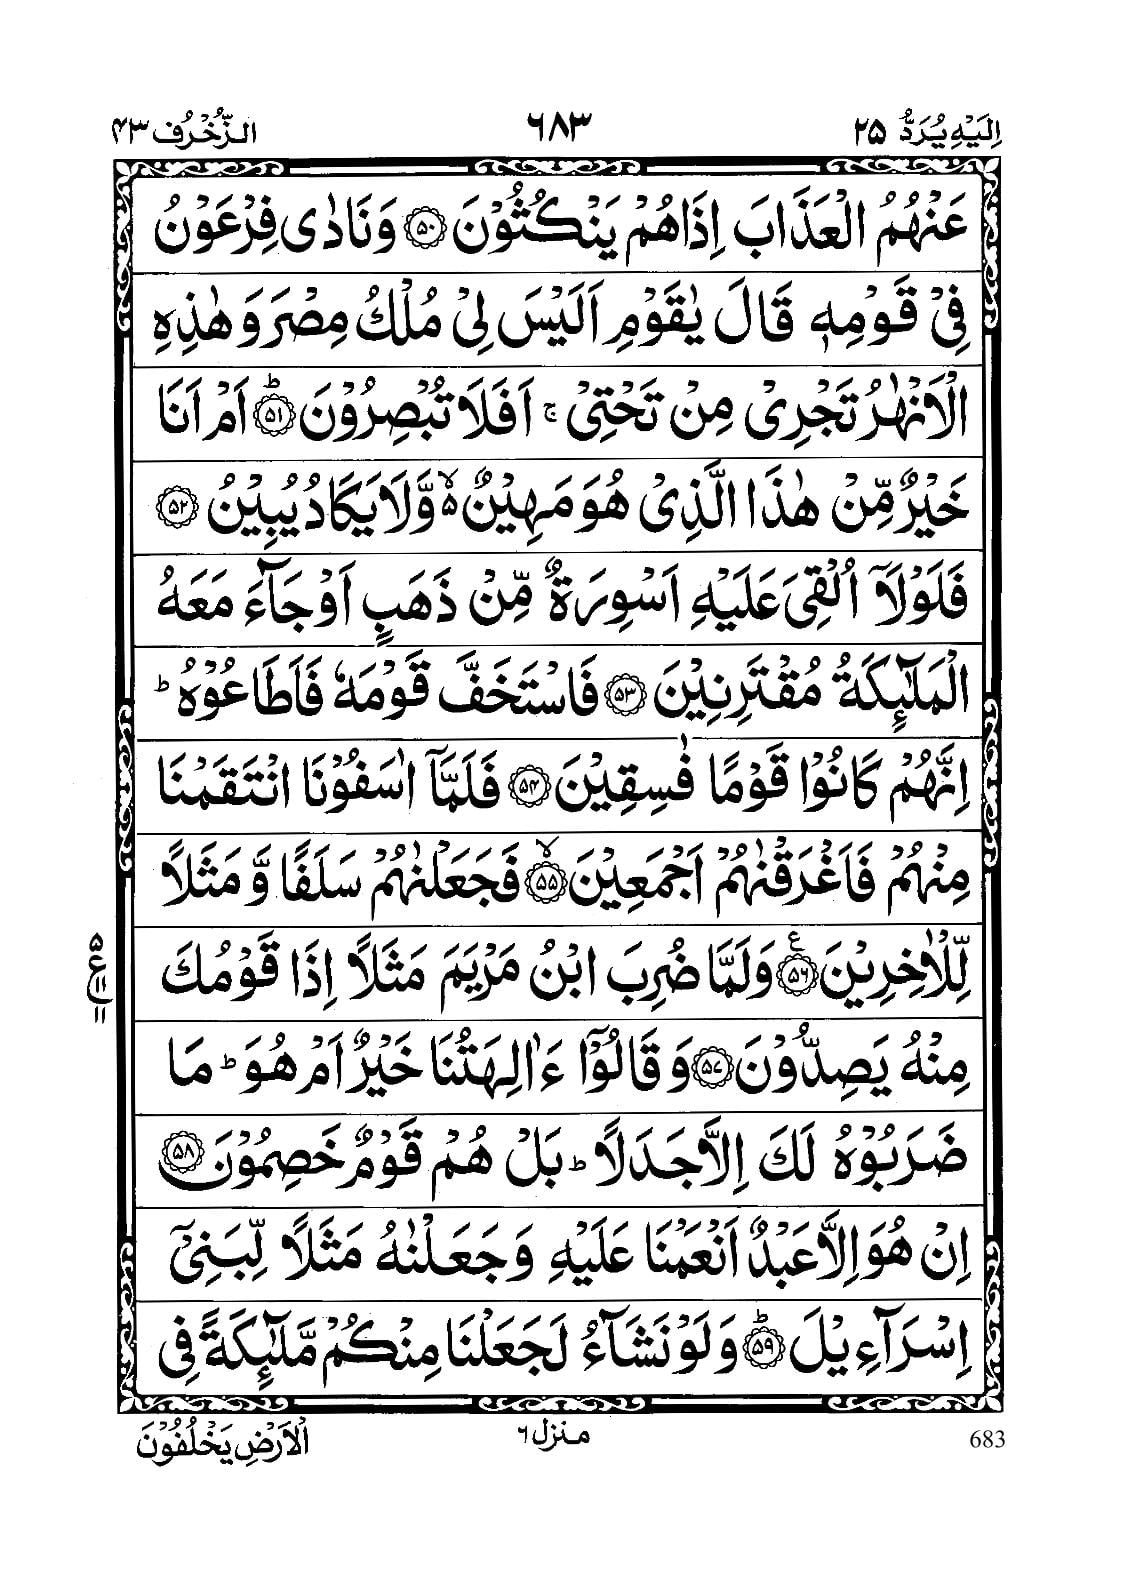 اِلَيْهِ يُرَدُّ ٢٥ ٦٨٣ الزُّخْرُف ٤٣
عَنْهُمُ الْعَذَابَ اِذَا هُمْ يَنْكُثُوْنَ ﴿٥٠﴾ وَنَادٰى فِرْعَوْنُ
فِيْ قَوْمِهٖ قَالَ يٰقَوْمِ اَلَيْسَ لِيْ مُلْكُ مِصْرَ وَهٰذِهِ
الْاَنْهٰرُ تَجْرِيْ مِنْ تَحْتِيْ ۚ اَفَلَا تُبْصِرُوْنَ ﴿٥١﴾ؕ اَمْ اَنَا
خَيْرٌ مِّنْ هٰذَا الَّذِيْ هُوَ مَهِيْنٌ ۙ۬ وَّلَا يَكَادُ يُبِيْنُ ﴿٥٢﴾
فَلَوْلَاۤ اُلْقِيَ عَلَيْهِ اَسْوِرَةٌ مِّنْ ذَهَبٍ اَوْ جَآءَ مَعَهُ
الْمَلٰٓئِكَةُ مُقْتَرِنِيْنَ ﴿٥٣﴾ فَاسْتَخَفَّ قَوْمَهٗ فَاَطَاعُوْهُ ؕ
اِنَّهُمْ كَانُوْا قَوْمًا فٰسِقِيْنَ ﴿٥٤﴾ فَلَمَّاۤ اٰسَفُوْنَا انْتَقَمْنَا
مِنْهُمْ فَاَغْرَقْنٰهُمْ اَجْمَعِيْنَ ﴿٥٥﴾ۙ فَجَعَلْنٰهُمْ سَلَفًا وَّمَثَلًا
لِّلْاٰخِرِيْنَ ﴿٥٦﴾ۧ وَلَمَّا ضُرِبَ ابْنُ مَرْيَمَ مَثَلًا اِذَا قَوْمُكَ
٥ ع ١١ ١١
مِنْهُ يَصِدُّوْنَ ﴿٥٧﴾ وَقَالُوْۤا ءَاٰلِهَتُنَا خَيْرٌ اَمْ هُوَ ؕ مَا
ضَرَبُوْهُ لَكَ اِلَّا جَدَلًا ؕ بَلْ هُمْ قَوْمٌ خَصِمُوْنَ ﴿٥٨﴾
اِنْ هُوَ اِلَّا عَبْدٌ اَنْعَمْنَا عَلَيْهِ وَجَعَلْنٰهُ مَثَلًا لِّبَنِيْۤ
اِسْرَآءِيْلَ ﴿٥٩﴾ؕ وَلَوْ نَشَآءُ لَجَعَلْنَا مِنْكُمْ مَّلٰٓئِكَةً فِى
683 منزل ٦ الْاَرْضِ يَخْلُفُوْنَ